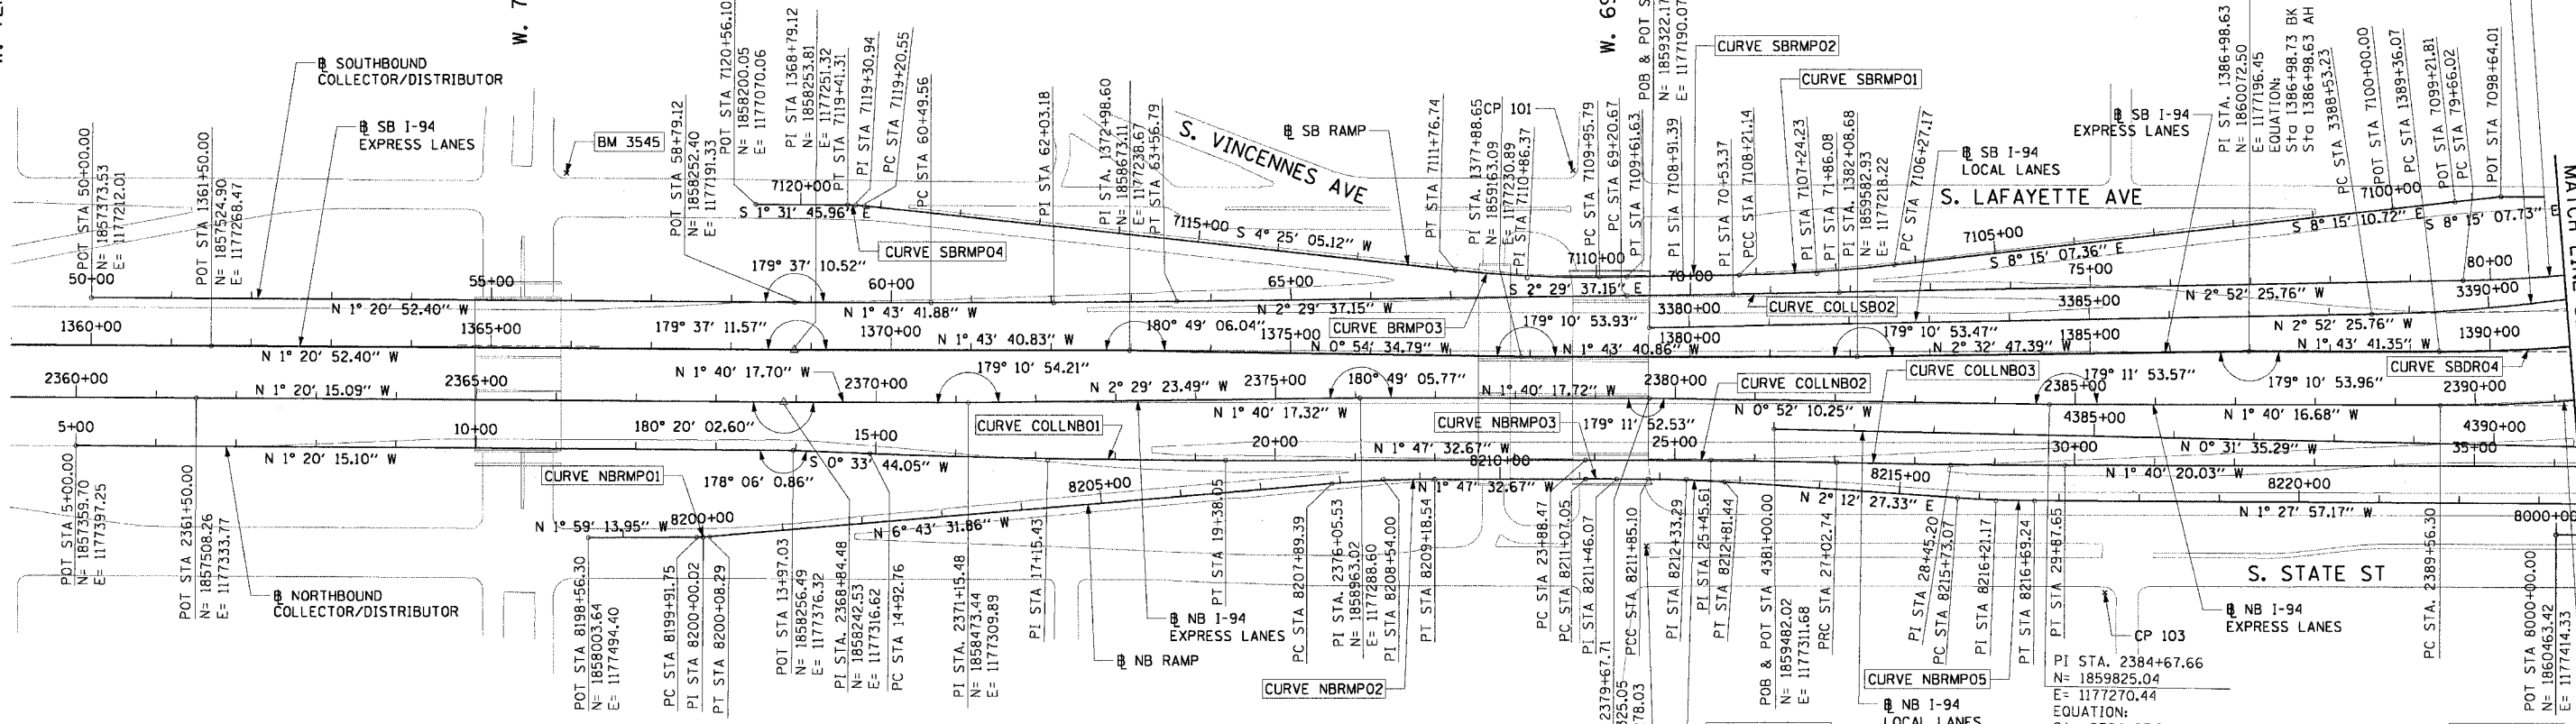 W. 7
W. 69
℄ SOUTHBOUND
COLLECTOR/DISTRIBUTOR
℄ SB I-94
EXPRESS LANES
BM 3545
POT STA 50+00.00
N= 1857373.53
E= 1177212.01
POT STA 1361+50.00
N= 1857524.90
E= 1177268.47
POT STA 58+79.12
N= 1858252.40
E= 1177191.33
POT STA 7120+56.10
N= 1858200.05
E= 1177070.06
PI STA 1368+79.12
N= 1858253.81
E= 1177251.32
PT STA 7119+41.31
PI STA 7119+30.94
PC STA 7119+20.55
PC STA 60+49.56
PI STA 62+03.18
PI STA. 1372+98.60
N= 1858673.11
E= 1177238.67
PT STA 63+56.79
S. VINCENNES AVE
℄ SB RAMP
PT STA 7111+76.74
PI STA. 1377+88.65
N= 1859163.09
E= 1177230.89
PI STA 7110+86.37
CP 101
PC STA 7109+95.79
PC STA 69+20.67
PT STA 7109+61.63
POB & POT S
N= 1859322.17
E= 1177190.07
CURVE SBRMP02
PI STA 7108+91.39
CURVE SBRMP01
PI STA 70+53.37
PCC STA 7108+21.14
PI STA 7107+24.23
PT STA 71+86.08
PI STA. 1382+08.68
N= 1859582.93
E= 1177218.22
PC STA 7106+27.17
℄ SB I-94
LOCAL LANES
S. LAFAYETTE AVE
℄ SB I-94
EXPRESS LANES
PI STA. 1386+98.63
N= 1860072.50
E= 1177196.45
EQUATION:
Sta 1386+98.73 BK
Sta 1386+98.63 AH
PC STA 3388+53.23
POT STA 7100+00.00
PC STA 1389+36.07
POT STA 7099+21.81
PC STA 79+66.02
POT STA 7098+64.01
7120+00
S 1° 31' 45.96" E
CURVE SBRMP04
7115+00
S 4° 25' 05.12" W
7110+00
7105+00
S 8° 15' 07.36" E
7100+00
S 8° 15' 10.72" E
S 8° 15' 07.73" E
50+00
N 1° 20' 52.40" W
55+00
179° 37' 10.52"
60+00
N 1° 43' 41.88" W
65+00
N 2° 29' 37.15" W
S 2° 29' 37.15" E
70+00
CURVE COLLSB02
75+00
N 2° 52' 25.76" W
80+00
3380+00
3385+00
N 2° 52' 25.76" W
3390+00
1360+00
N 1° 20' 52.40" W
1365+00
179° 37' 11.57"
1370+00
N 1° 43' 40.83" W
180° 49' 06.04"
1375+00
CURVE BRMP03
N 0° 54' 34.79" W
179° 10' 53.93"
N 1° 43' 40.86" W
1380+00
179° 10' 53.47"
N 2° 32' 47.39" W
1385+00
N 1° 43' 41.35" W
1390+00
CURVE SBDR04
2360+00
N 1° 20' 15.09" W
2365+00
N 1° 40' 17.70" W
2370+00
179° 10' 54.21"
N 2° 29' 23.49" W
2375+00
180° 49' 05.77"
N 1° 40' 17.32" W
N 1° 40' 17.72" W
2380+00
CURVE COLLNB02
CURVE COLLNB03
N 0° 52' 10.25" W
2385+00
179° 11' 53.57"
179° 10' 53.96"
2390+00
4385+00
N 1° 40' 16.68" W
4390+00
5+00
N 1° 20' 15.10" W
10+00
180° 20' 02.60"
15+00
S 0° 33' 44.05" W
CURVE COLLNB01
20+00
N 1° 47' 32.67" W
CURVE NBRMP03
179° 11' 52.53"
25+00
30+00
N 0° 31' 35.29" W
35+00
CURVE NBRMP01
178° 06' 0.86"
N 1° 59' 13.95" W
8200+00
N 6° 43' 31.86" W
8205+00
8210+00
N 1° 47' 32.67" W
N 2° 12' 27.33" E
8215+00
N 1° 40' 20.03" W
8220+00
N 1° 27' 57.17" W
8000+00
POT STA 5+00.00
N= 1857359.70
E= 1177397.25
POT STA 2361+50.00
N= 1857508.26
E= 1177333.77
℄ NORTHBOUND
COLLECTOR/DISTRIBUTOR
POT STA 8198+56.30
N= 1858003.64
E= 1177494.40
PC STA 8199+91.75
PI STA 8200+00.02
PT STA 8200+08.29
POT STA 13+97.03
N= 1858256.49
E= 1177376.32
PI STA. 2368+84.48
N= 1858242.53
E= 1177316.62
PC STA 14+92.76
PI STA. 2371+15.48
N= 1858473.44
E= 1177309.89
PI STA 17+15.43
℄ NB I-94
EXPRESS LANES
℄ NB RAMP
PT STA 19+38.05
CURVE NBRMP02
PC STA 8207+89.39
PI STA. 2376+05.53
N= 1858963.02
E= 1177288.60
PI STA 8208+54.00
PT STA 8209+18.54
PC STA 23+88.47
PC STA 8211+07.05
PI STA 8211+46.07
2379+67.71
325.05
78.03
PCC STA 8211+85.10
PI STA 8212+33.29
PI STA 25+45.61
PT STA 8212+81.44
POB & POT STA 4381+00.00
N= 1859482.02
E= 1177311.68
PRC STA 27+02.74
℄ NB I-94
LOCAL LANES
CURVE NBRMP05
PI STA 28+45.20
PC STA 8215+73.07
PI STA 8216+21.17
PT STA 8216+69.24
PT STA 29+87.65
CP 103
PI STA. 2384+67.66
N= 1859825.04
E= 1177270.44
EQUATION:
S. STATE ST
℄ NB I-94
EXPRESS LANES
PC STA. 2389+56.30
POT STA 8000+00.00
N= 1860463.42
E= 1177414.33